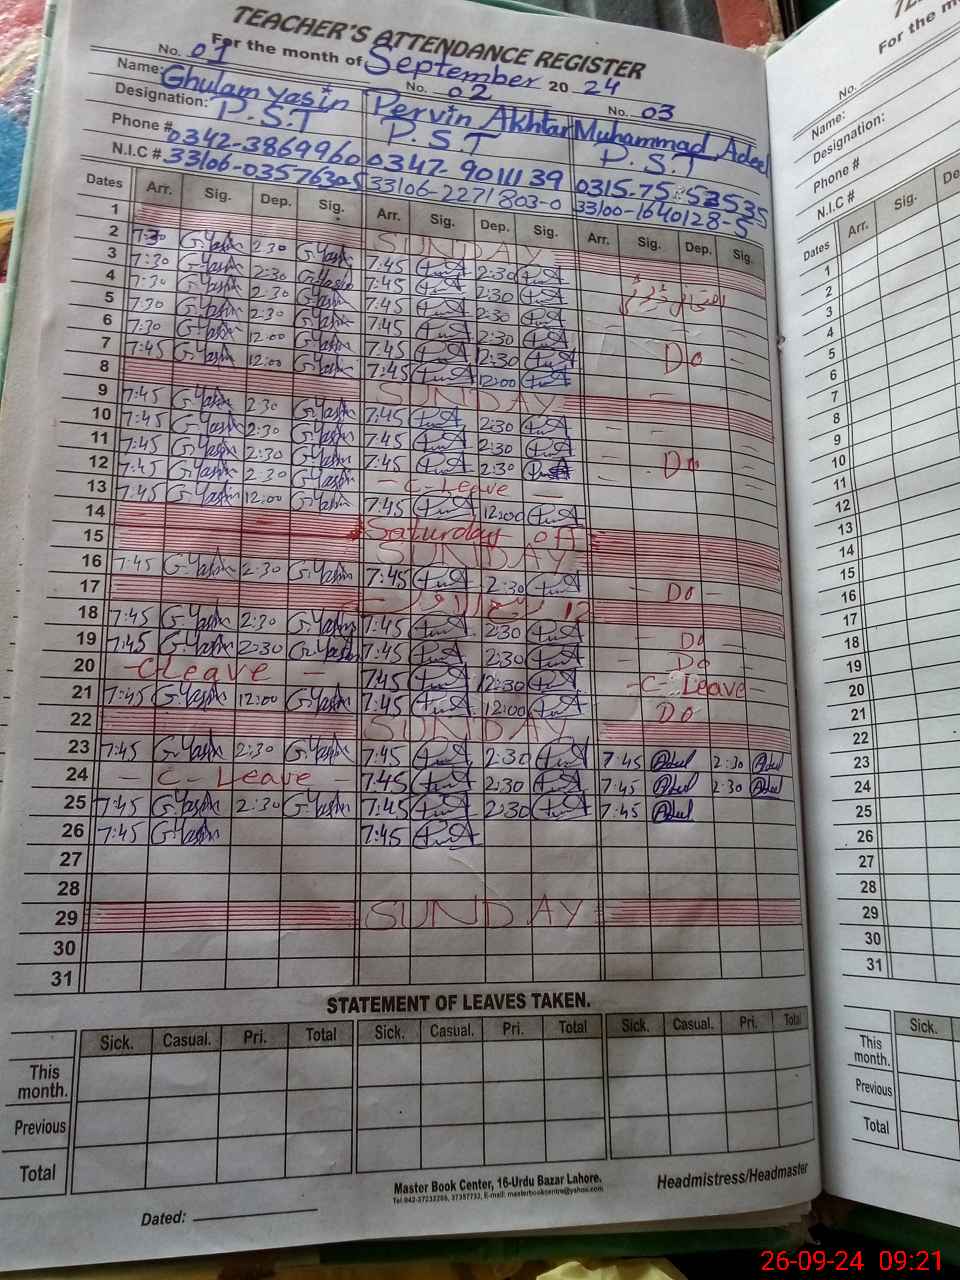 TEACHER'S ATTENDANCE REGISTER
For the month of September 2024
No. 01 No. 02 No. 03
Name: Ghulam Yasin Pervin Akhtar Muhammad Adeel
Designation: P.S.T P.S.T P.S.T
Phone # 0342-3869960 0347-9011139 0315-75 53535
N.I.C # 33106-0357630-5 33106-2271803-0 33100-1640128-5
Dates Arr. Sig. Dep. Sig. Arr. Sig. Dep. Sig. Arr. Sig. Dep. Sig.
1 SUNDAY
2 7:30 G.Yasin 2:30 G.Yasin 7:45 2:30
3 7:30 G.Yasin 2:30 G.Yasin 7:45 2:30
4 7:30 G.Yasin 2:30 G.Yasin 7:45 2:30
5 7:30 G.Yasin 2:30 G.Yasin 7:45 2:30 Do
6 7:30 G.Yasin 12:00 G.Yasin 7:45 12:30
7 7:45 G.Yasin 12:00 G.Yasin 7:45 12:00
8 SUNDAY
9 7:45 G.Yasin 2:30 G.Yasin 7:45 2:30
10 7:45 G.Yasin 2:30 G.Yasin 7:45 2:30
11 7:45 G.Yasin 2:30 G.Yasin 7:45 2:30 Do
12 7:45 G.Yasin 2:30 G.Yasin - C-Leave -
13 7:45 G.Yasin 12:00 G.Yasin 7:45 12:00
14 Saturday off
15 SUNDAY
16 7:45 G.Yasin 2:30 G.Yasin 7:45 2:30 - Do -
17 12 ربیع الاول
18 7:45 G.Yasin 2:30 G.Yasin 7:45 2:30 - Do
19 7:45 G.Yasin 2:30 G.Yasin 7:45 2:30 - Do
20 - C Leave - 7:45 12:30 - C-Leave -
21 7:45 G.Yasin 12:00 G.Yasin 7:45 12:00 Do
22 SUNDAY
23 7:45 G.Yasin 2:30 G.Yasin 7:45 2:30 7:45 Adeel 2:30 Adeel
24 - C-Leave - 7:45 2:30 7:45 Adeel 2:30 Adeel
25 7:45 G.Yasin 2:30 G.Yasin 7:45 2:30 7:45 Adeel
26 7:45 G.Yasin 7:45
27
28
29 SUNDAY
30
31
STATEMENT OF LEAVES TAKEN.
Sick. Casual. Pri. Total Sick. Casual. Pri. Total Sick. Casual. Pri. Total
This month.
Previous
Total
Master Book Center, 16-Urdu Bazar Lahore.
Headmistress/Headmaster
Dated:
For the m
No.
Name:
Designation:
Phone #
N.I.C #
Dates Arr. Sig. De
1
2
3
4
5
6
7
8
9
10
11
12
13
14
15
16
17
18
19
20
21
22
23
24
25
26
27
28
29
30
31
Sick.
This month.
Previous
Total
26-09-24 09:21